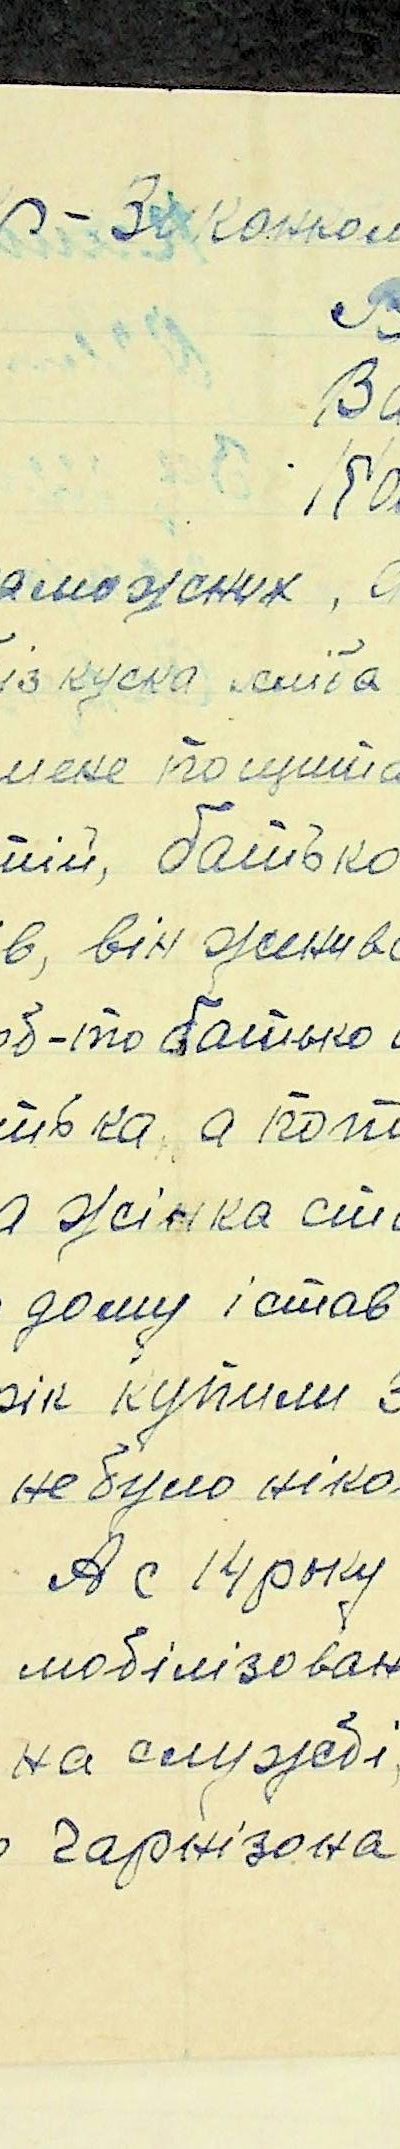 р-Зіконном
В
Ва
аможних,
із куска хліба
мене пощита
тій, батько
ів, він жив
об-то батько
тька, а пот
а жінка ста
дому і став
рік купили з
не було ніко
А с 14 року
мобілізован
на службі,
гарнізона